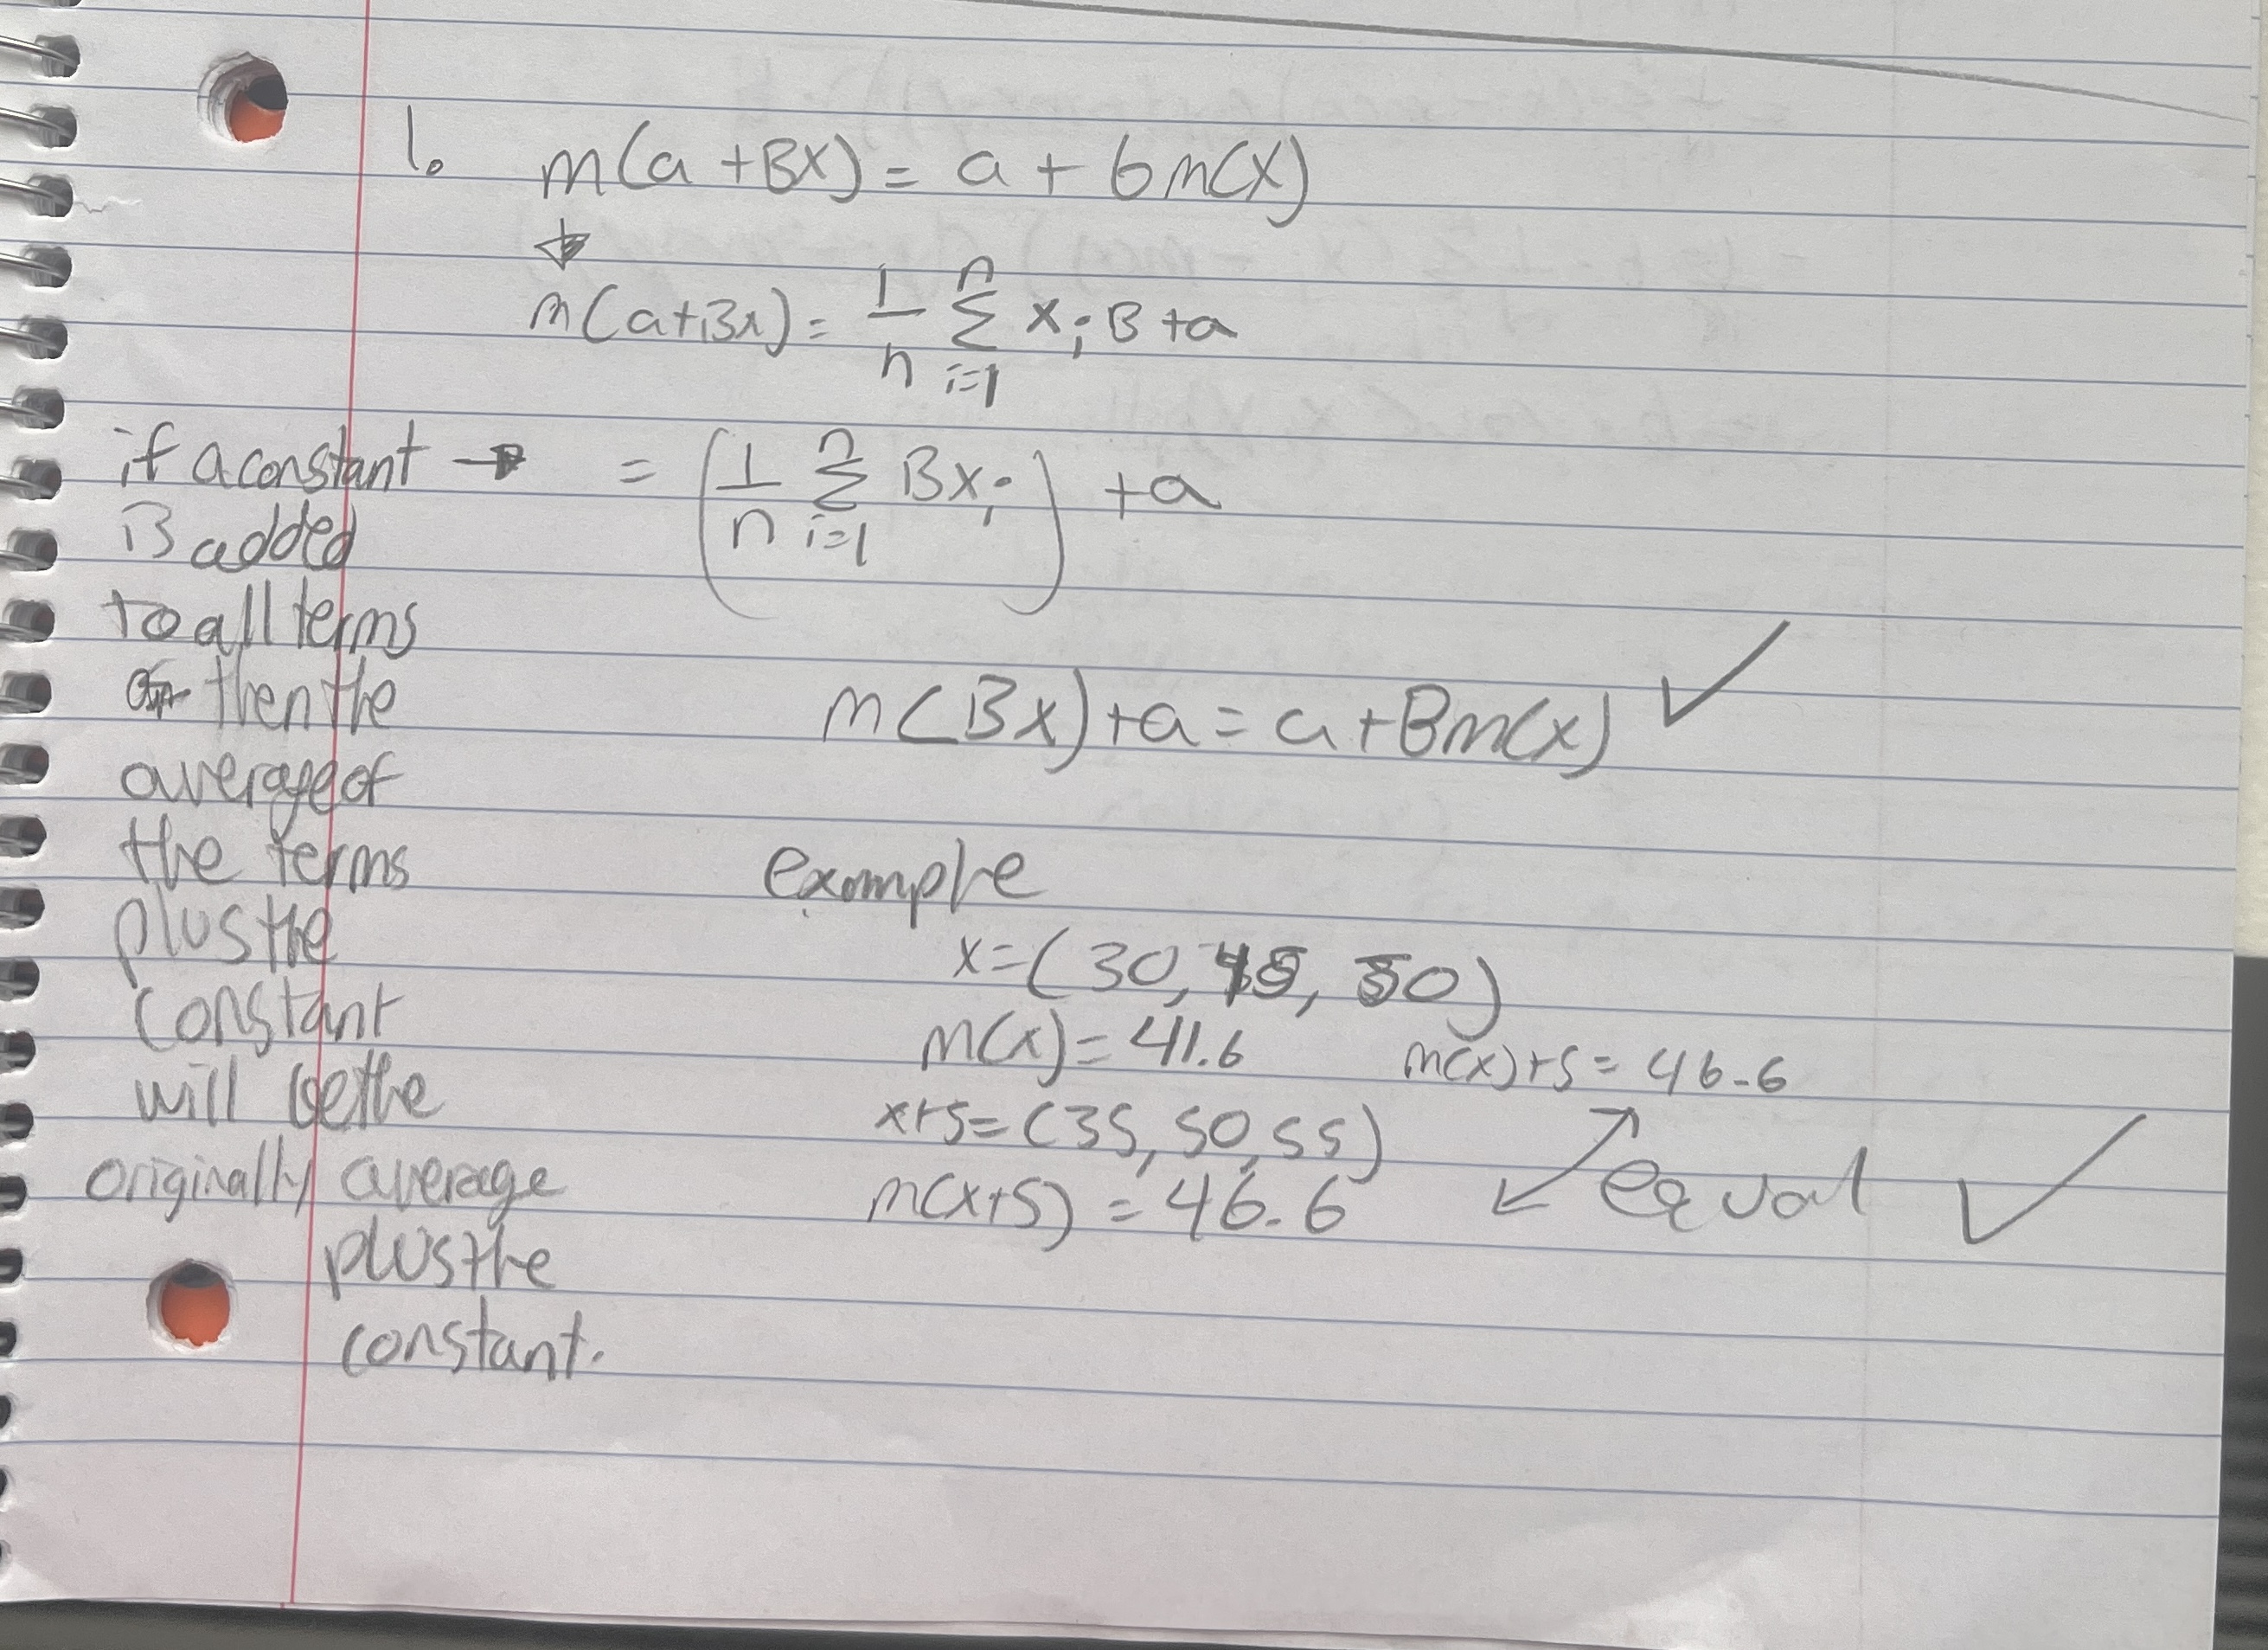 1. m(a+BX) = a + bm(X)
m(a+Bx) = 1/n n Σ i=1 x i B + a
if a constant → = (1/n n Σ i=1 Bx i) + a
is added
to all terms
then the
average of
the terms
plus the
constant
will be the
originally average
plus the
constant.
m(Bx) + a = a + Bm(x) ✓
example
x = (30, 45, 50)
m(x) = 41.6 m(x)+5 = 46.6
x+5 = (35, 50, 55)
m(x+5) = 46.6 equal ✓